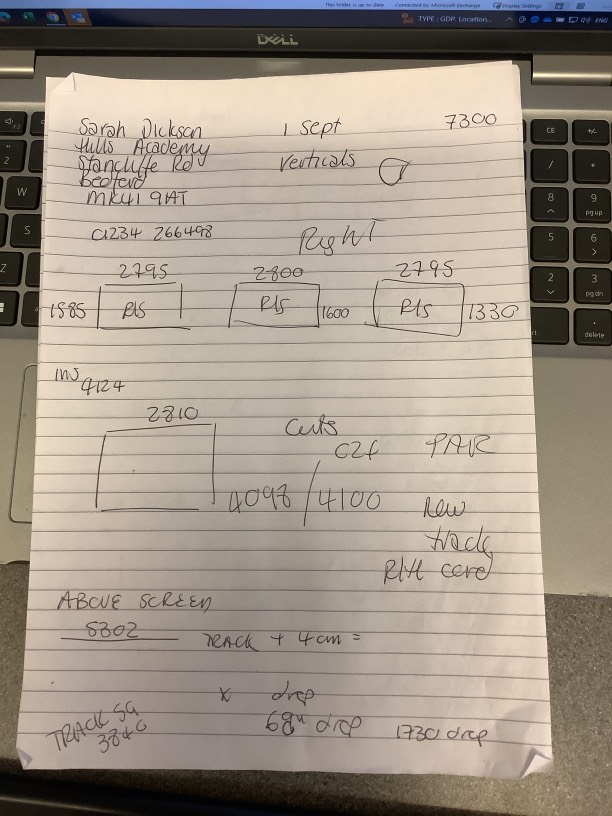 This folder is up to date. Connected to: Microsoft Exchange Display Settings
TYPE : GDP. Location...
DELL
Sarah Dickson 1 Sept 7300
Hills Academy
Stancliffe Rd Verticals
Bedford
MK41 9AT
01234 266498
RIGHT
2795 2800 2795
1585 R/S R/S 1600 R/S 1330
INS
4124
2810
Curts
C2F PAIR
4098 / 4100 New
track
R/H cord
ABOVE SCREEN
5302 TRACK + 4cm =
x drop
TRACK SG 68" drop 1730 drop
3840
CE +/-
/ *
8 9 pg up
5 6
2 3 pg dn
0 . delete
2
W
S
Z